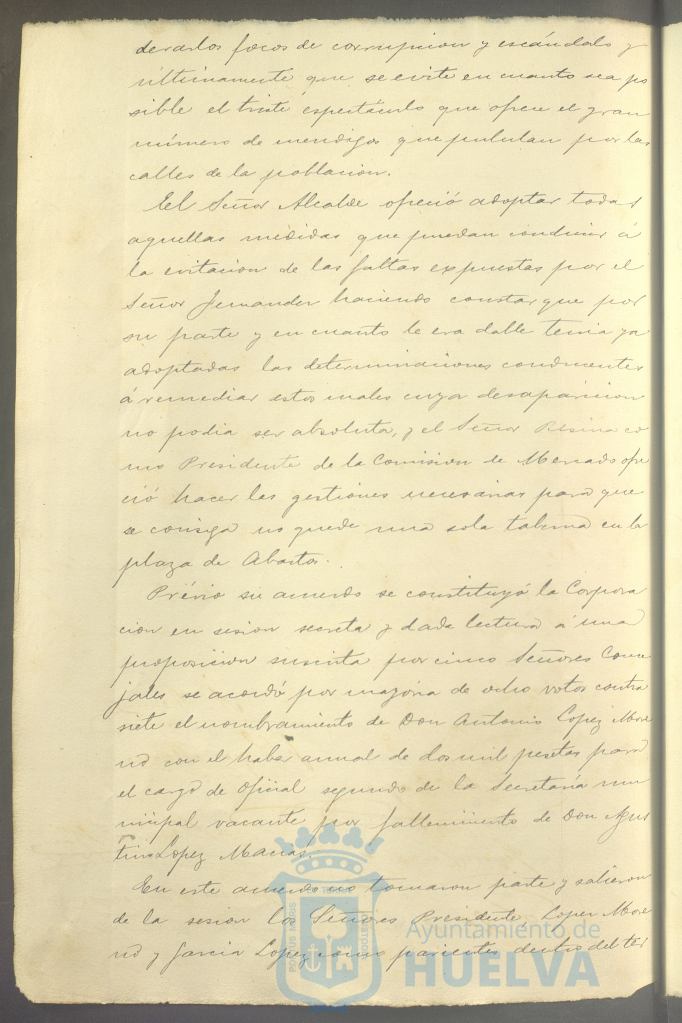 derarlos focos de corrupcion y escándalo y
últimamente que se evite en cuanto sea po
sible el triste espectáculo que ofrece el gran
número de mendigos que pululan por las
calles de la poblacion.
El Señor Alcalde ofreció adoptar todas
aquellas medidas que puedan conducir á
la evitacion de las faltas expuestas por el
Señor Fernandez haciendo constar que por
su parte y en cuanto le era dable tenia ya
adoptadas las determinaciones conducentes
á remediar estos males cuya desaparicion
no podia ser absoluta, y el Señor Resina co
mo Presidente de la Comision de Mercado ofre
ció hacer las gestiones necesarias para que
se consiga no quede una sola taberna en la
plaza de Abastos.
Prévio su acuerdo se constituyó la Corpora
cion en sesion secreta y dada lectura á una
proposicion suscrita por cinco Señores Conce
jales se acordó por mayoria de ocho votos contra
siete el nombramiento de Don Antonio Lopez More
no con el haber anual de dos mil pesetas para
el cargo de Oficial segundo de la Secretaría mu
nicipal vacante por fallecimiento de Don Agus
tin Lopez Macias.
En este acuerdo no tomaron parte y salieron
de la sesion los Señores Presidente, Lopez More
no y Garcia Lopez como parientes dentro del ter
Ayuntamiento de
HUELVA